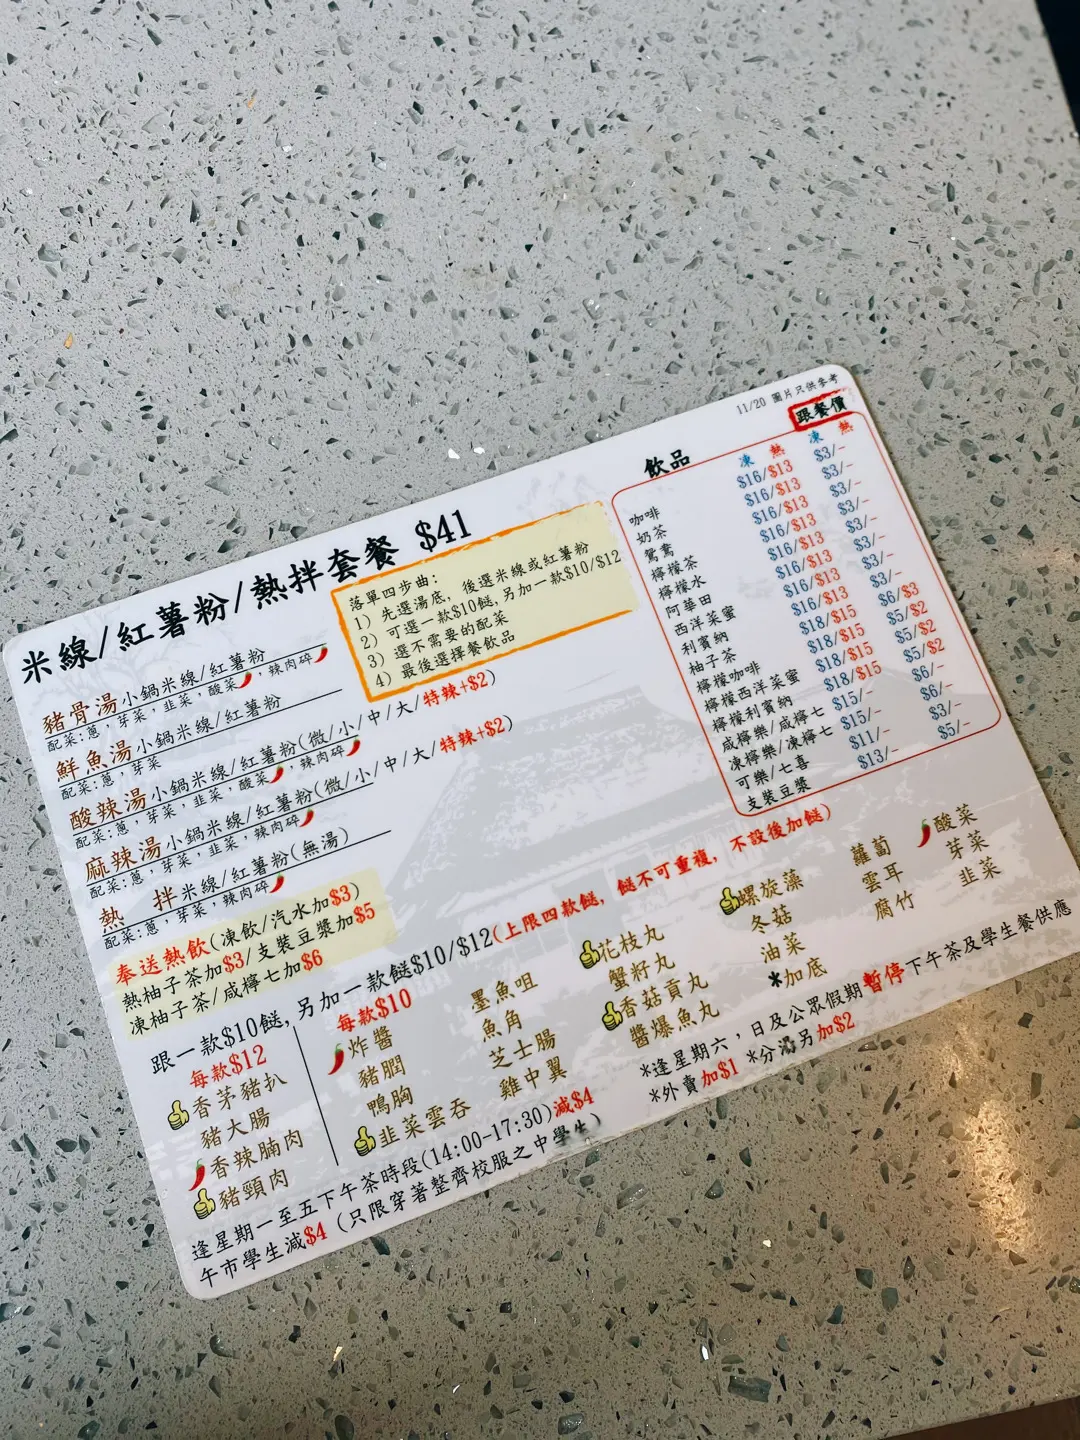 11/20 圖片只供參考
米線/紅薯粉/熱拌套餐 $41
豬骨湯小鍋米線/紅薯粉
配菜:蔥,芽菜,韭菜,酸菜,辣肉碎
鮮魚湯小鍋米線/紅薯粉
配菜:蔥,芽菜
酸辣湯小鍋米線/紅薯粉(微/小/中/大/特辣+$2)
配菜:蔥,芽菜,韭菜,酸菜,辣肉碎
麻辣湯小鍋米線/紅薯粉(微/小/中/大/特辣+$2)
配菜:蔥,芽菜,韭菜,辣肉碎
熱 拌米線/紅薯粉(無湯)
配菜:蔥,芽菜,辣肉碎
落單四步曲:
1) 先選湯底, 後選米線或紅薯粉
2) 可選一款$10餸,另加一款$10/$12
3) 選不需要的配菜
4) 最後選擇餐飲品
奉送熱飲(凍飲/汽水加$3)
熱柚子茶加$3/支裝豆漿加$5
凍柚子茶/咸檸七加$6
飲品 跟餐價
凍 熱 凍 熱
咖啡 $16/$13 $3/-
奶茶 $16/$13 $3/-
鴛鴦 $16/$13 $3/-
檸檬茶 $16/$13 $3/-
檸檬水 $16/$13 $3/-
阿華田 $16/$13 $3/-
西洋菜蜜 $16/$13 $3/-
利賓納 $16/$13 $3/-
柚子茶 $18/$15 $6/$3
檸檬咖啡 $18/$15 $5/$2
檸檬西洋菜蜜 $18/$15 $5/$2
檸檬利賓納 $18/$15 $5/$2
咸檸樂/咸檸七 $15/- $6/-
凍檸樂/凍檸七 $15/- $6/-
可樂/七喜 $11/- $3/-
支裝豆漿 $13/- $5/-
跟一款$10餸,另加一款餸$10/$12(上限四款餸, 餸不可重複, 不設後加餸)
每款$12
香茅豬扒
豬大腸
香辣腩肉
豬頸肉
每款$10
炸醬
豬膶
鴨胸
韭菜雲吞
墨魚咀
魚角
芝士腸
雞中翼
花枝丸
蟹籽丸
香菇貢丸
醬爆魚丸
螺旋藻
冬菇
油菜
*加底
蘿蔔
雲耳
腐竹
酸菜
芽菜
韭菜
逢星期一至五下午茶時段(14:00-17:30)減$4
午市學生減$4 (只限穿著整齊校服之中學生)
*逢星期六,日及公眾假期暫停下午茶及學生餐供應
*外賣加$1 *分湯另加$2